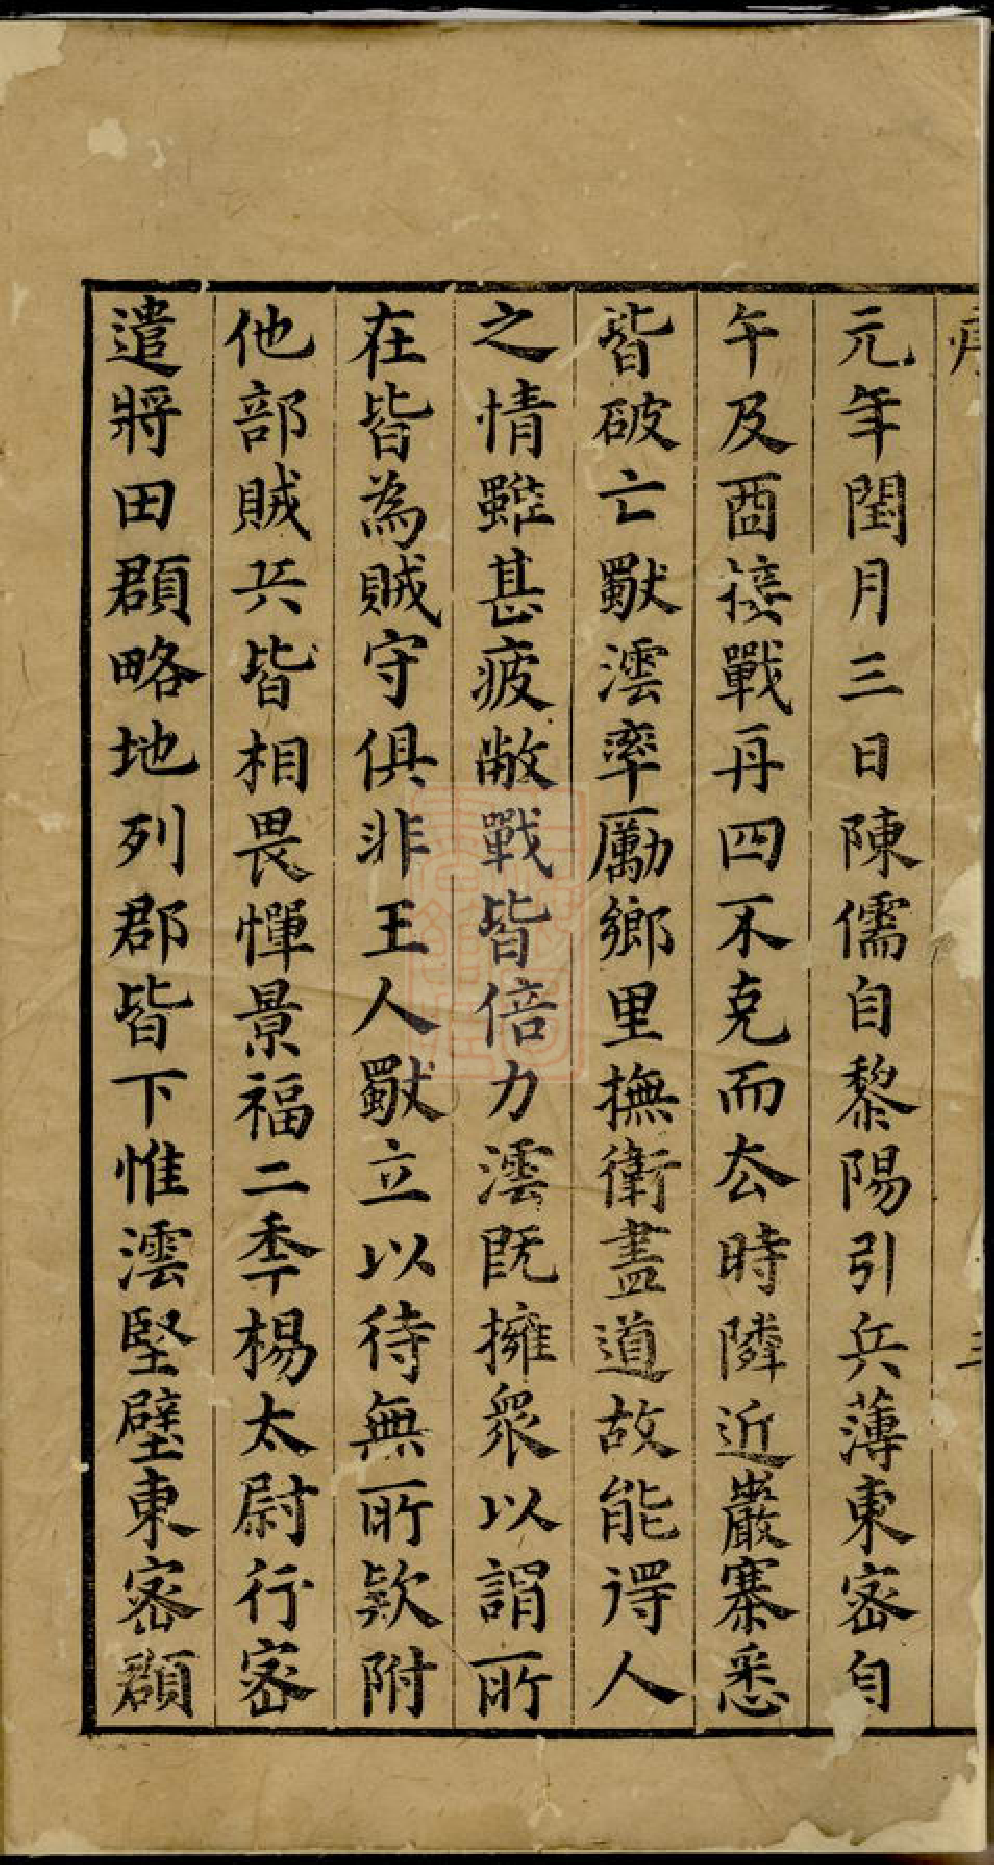 元年閏月三日陳儒自黎陽引兵薄東密自
午及酉接戰再四不克而去時隣近巖寨悉
皆破亡獨澐率勵鄉里撫衛盡道故能得人
之情雖甚疲敝戰皆倍力澐既擁衆以謂所
在皆為賊守俱非王人獨立以待無所欵附
他部賊兵皆相畏憚景福二秊楊太尉行密
遣將田頵略地列郡皆下惟澐堅壁東密頵